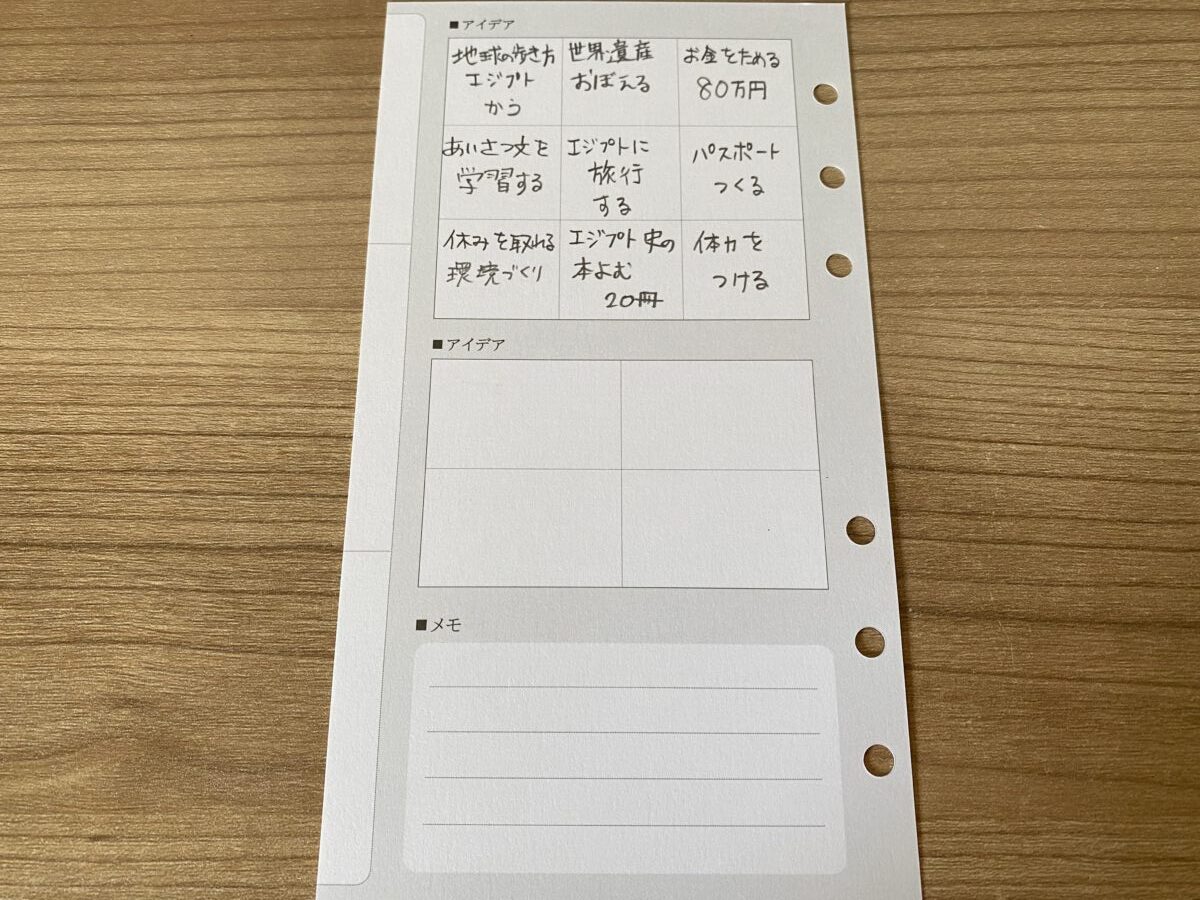 ■アイデア
地球の歩き方
エジプト
かう
世界遺産
おぼえる
お金をためる
80万円
あいさつ文を
学習する
エジプトに
旅行
する
パスポート
つくる
休みを取れる
環境づくり
エジプト史の
本よむ
20冊
体力を
つける
■アイデア
■メモ